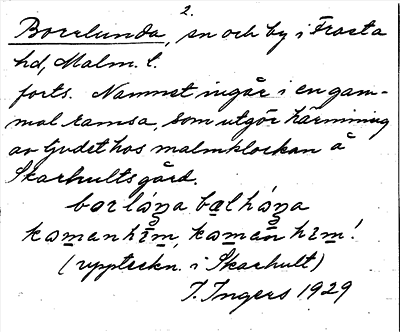 2.
Borrlunda, sn och by i Frosta
hd, Malm. l.
forts. Namnet ingår i en gam-
mal ramsa, som utgör härmning
av ljudet hos malmklockan å
Skarhults gård.
kamanhīm, kamān him!
(uppteckn. i Skarhult)
I. Ingers 1929